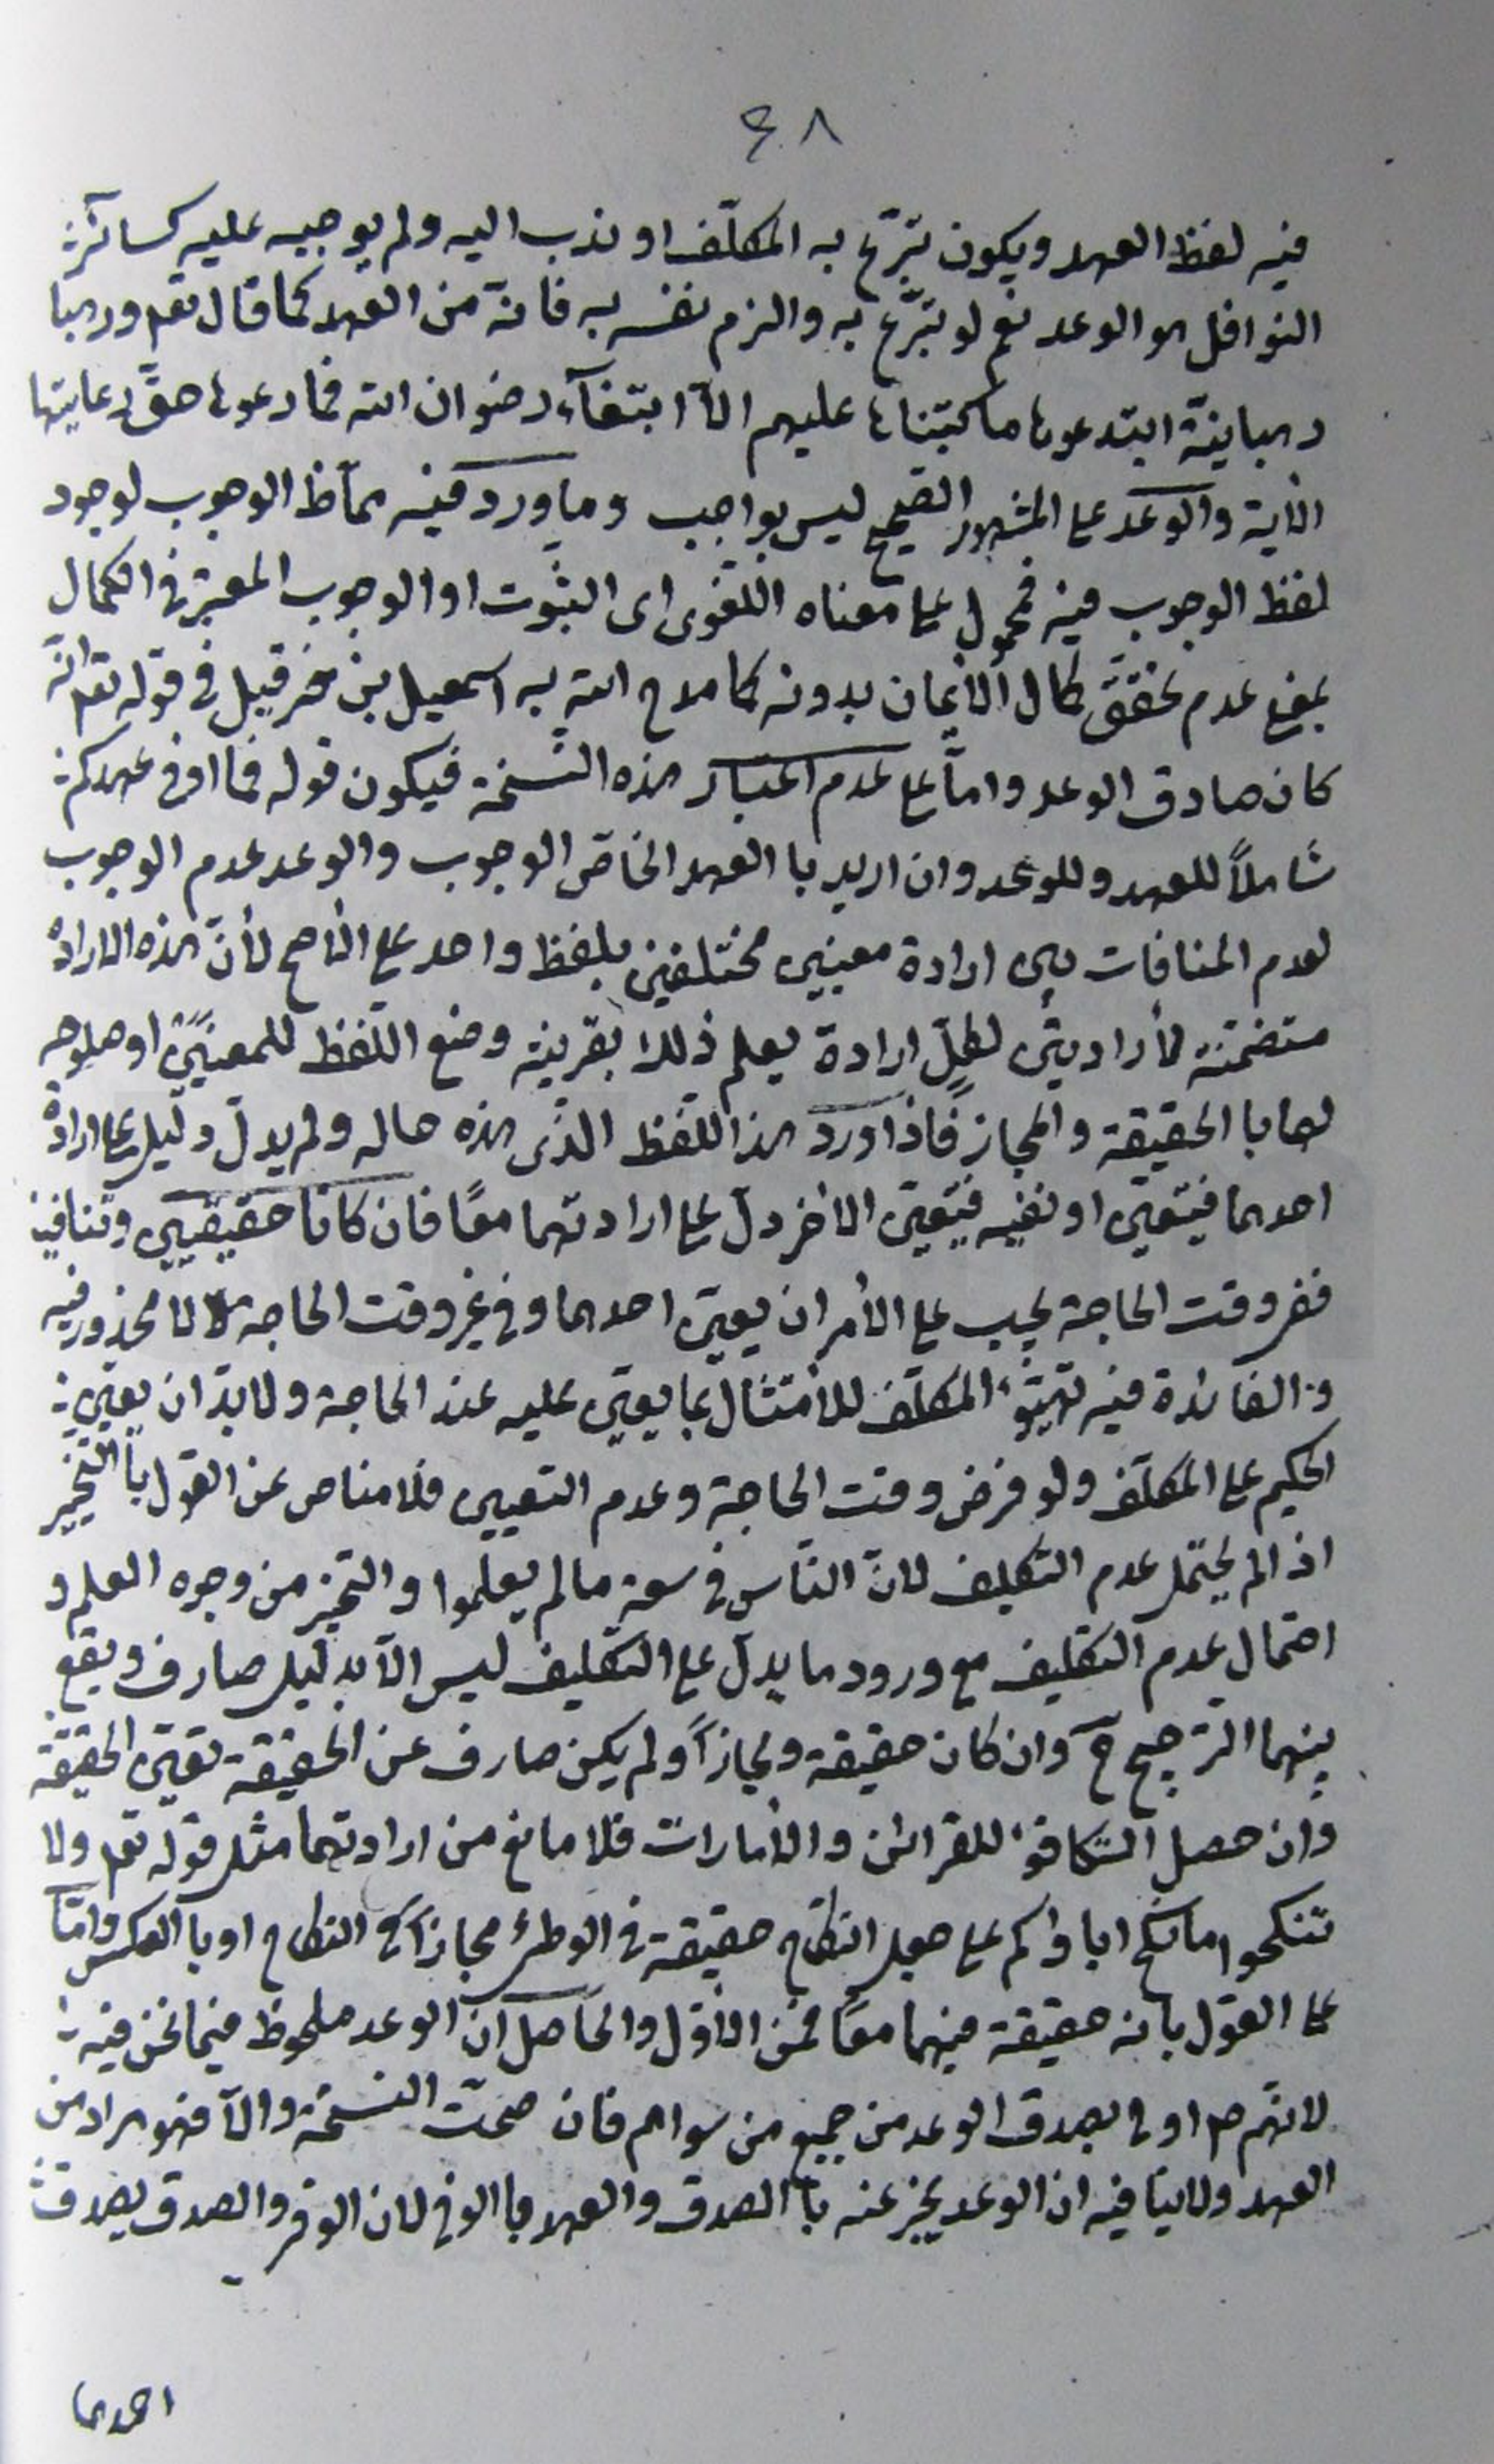 ٤٨
فيه لفظ العهد ويكون تبرّع به المكلّف او ندب اليه ولم يوجبه عليه كسائر
النوافل هو الوعد نعم لو تبرّع به والزم نفسه به فانّه من العهد كما قال تعم ورهبا
رهبانيّة ابتدعوها ما كتبناها عليهم الاّ ابتغآء رضوان الله فما رعوها حقّ رعايتها
الأية والوعد على المشهور الصحيح ليس بواجب وما ورد فيه ممّا ظ الوجوب لوجود
لفظ الوجوب فيه فمحمول على معناه اللّغوى اى الثبوت او الوجوب المعتبر فى الكمال
بمعنى عدم تحقّق كمال الأيمان بدونه كما مدح الله به اسمعيل بن حزقيل فى قوله تعم انّه
كان صادق الوعد وامّا على عدم اعتبار هذه النّسخة فيكون قوله فما اوفى عهدكم
شاملاً للعهد وللوعد وان اريد با العهد الخاصّ الوجوب والوعد عدم الوجوب
لعدم المنافات بين ارادة معنيين مختلفين بلفظ واحد على الأصح لأنّ هذه الارادة
متضمّنة لأرادتين لكلٍّ ارادة يعلم ذلك بقرينة وضع اللّفظ للمعنيين او صلوحه
لهما با الحقيقة والمجاز فاذا ورد هذا اللّفظ الّذى هذه حاله ولم يدلّ دليل على ارادة
احدهما فيتعيّن او نفيه فيتعيّن الأخر دلّ على ارادتهما معًا فان كانا حقيقيين وتنافيا
ففى وقت الحاجة يجب على الأمر ان يعيّن احدهما وفى غير وقت الحاجة لا محذور فيه
والفائدة فيه تهيّؤ المكلّف للأمتثال بما يعيّن عليه عند الحاجة ولا بدّ ان يعيّن
الحكيم على المكلّف ولو فرض وقت الحاجة وعدم التعيين فلا مناص عن القول با التّخيير
اذا لم يحتمل عدم التكليف لانّ النّاس فى سعة ما لم يعلموا والتّخيّر من وجوه العلم و
احتمال عدم التكليف مع ورود ما يدلّ على التكليف ليس الاّ بدليل صارف ويقع
بينهما الترجيح ح وان كان حقيقة ومجازاً ولم يكن صارف عن الحقيقة تعيّن الحقيقة
وان حصل التكافؤ للقرائن والأمارات فلا مانع من ارادتهما مثل قوله تعم ولا
تنكحوا ما نكح اباؤكم على جعل النّكاح حقيقة فى الوطئ مجازاً فى النكاح او با العكس وامّا
على القول بانه حقيقة فيهما معًا فمن الأوّل والحاصل انّ الوعد ملحوظ فيما نحن فيه
لانّهم ص اوفى بصدق الوعد من جميع من سواهم فان صحّت النسخة والاّ فهو مراد من
العهد ولا ينافيه ان الوعد يخبر عنه با الصدق والعهد با الوفى لان الوفى والصدق يصدق
احدهما